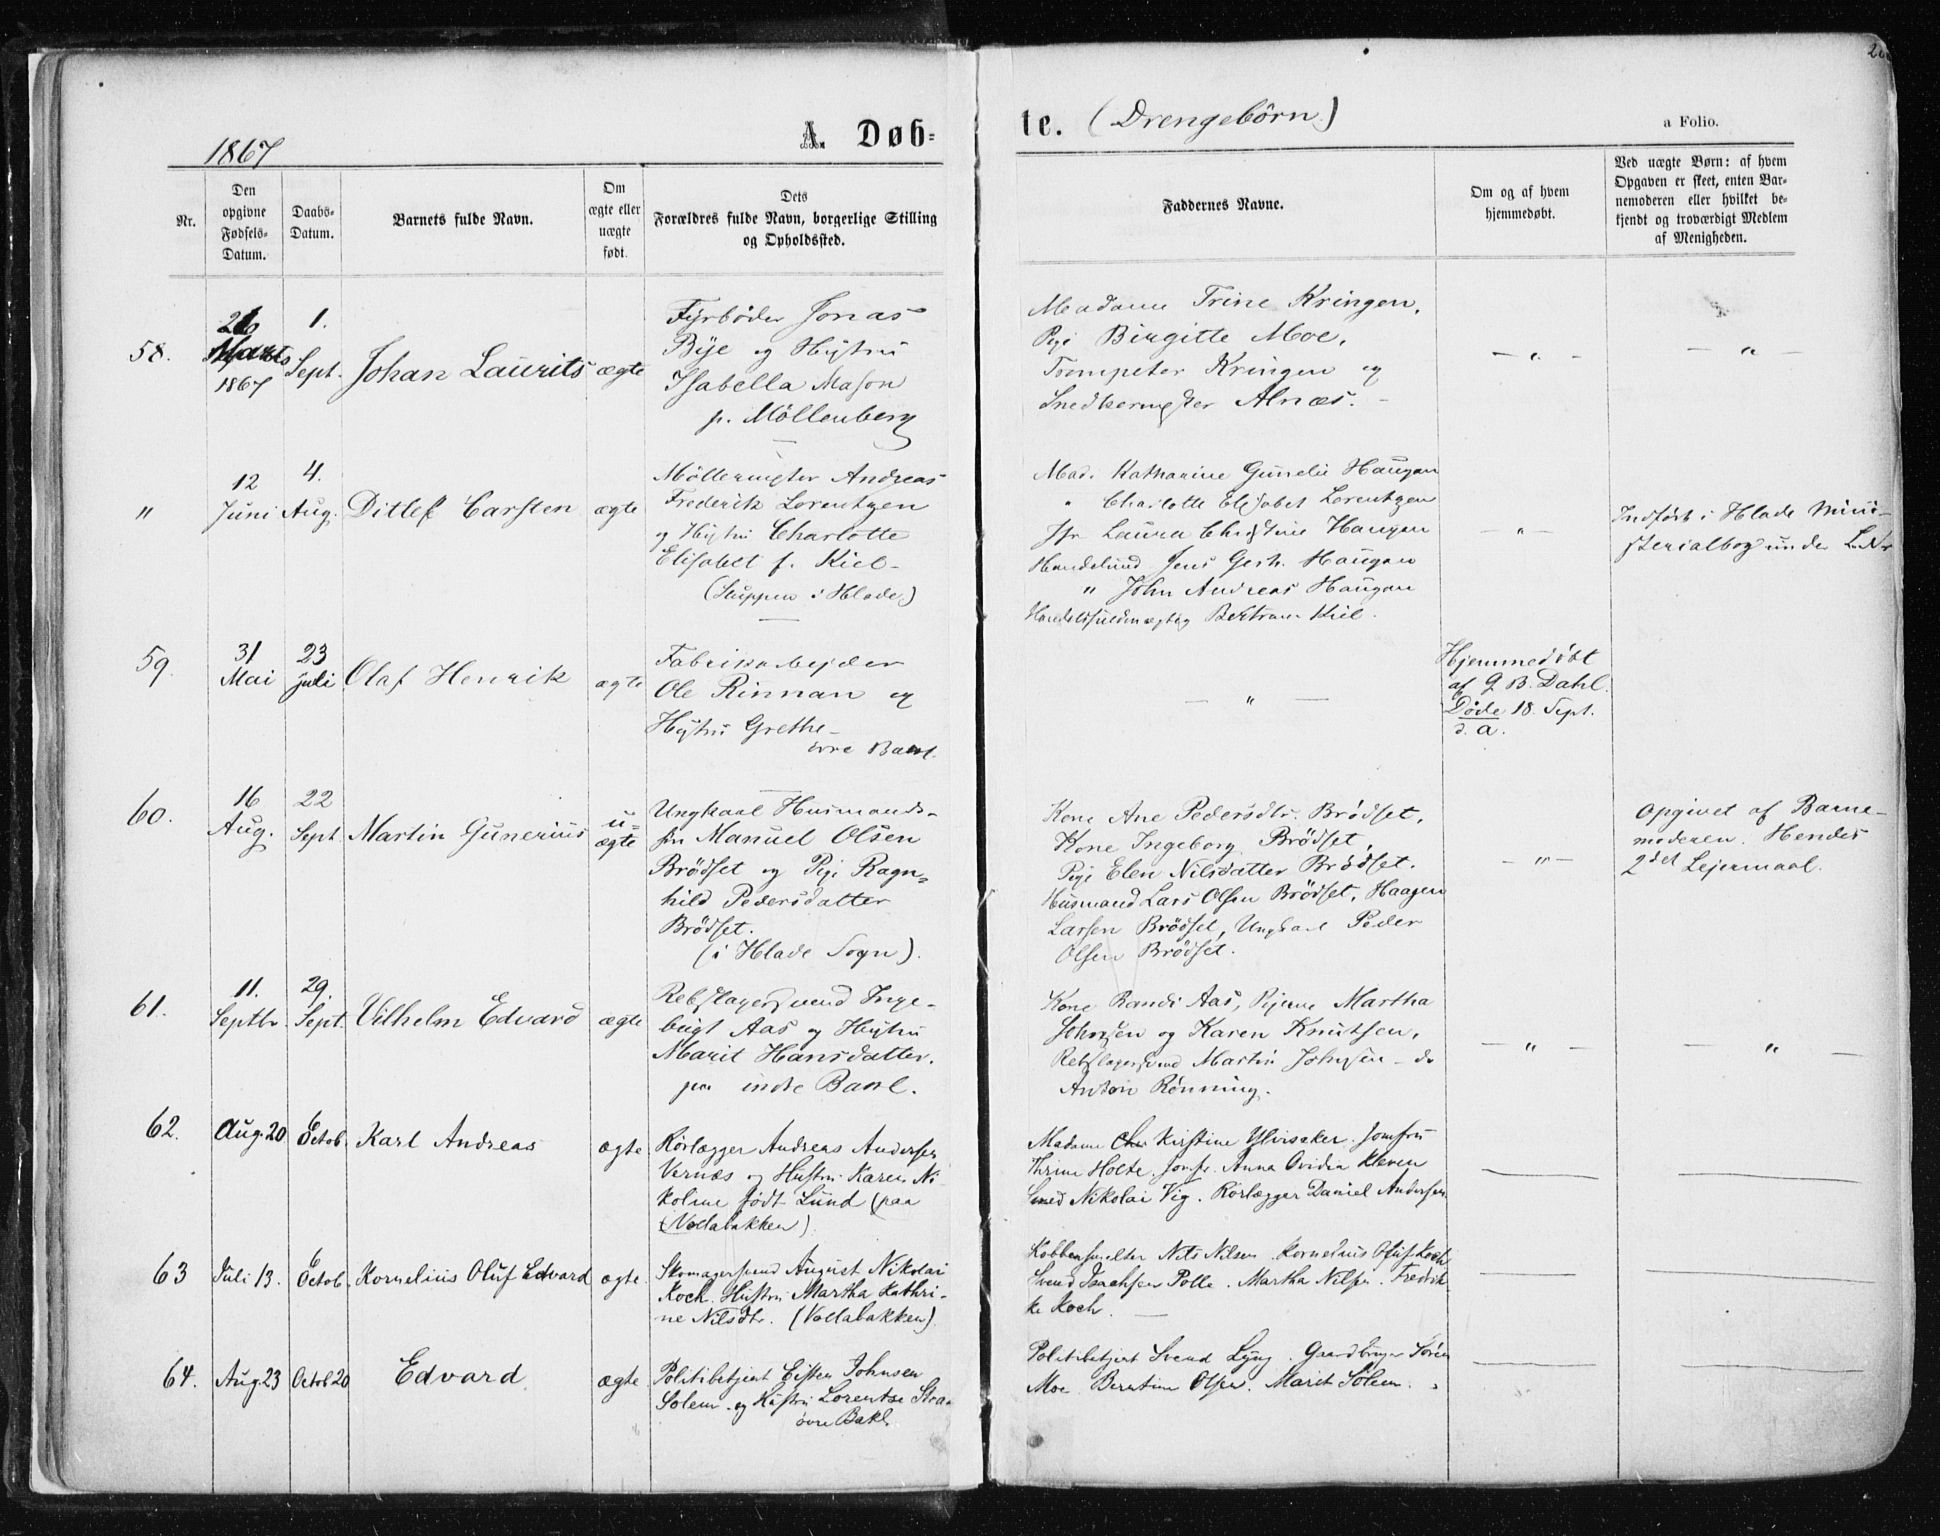 1867
A. Døb=
te. (Drengebörn)
a Folio.
Nr.
Den opgivne Fødsels-Datum.
Daabs-Datum.
Barnets fulde Navn.
Om ægte eller uægte født.
Dets Forældres fulde Navn, borgerlige Stilling og Opholdssted.
Faddernes Navne.
Om og af hvem hjemmedøbt.
Ved uægte Børn: af hvem Opgaven er skeet, enten Barnemoderen eller hvilket bekjendt og troværdigt Medlem af Menigheden.
58.
Marts
1867
1.
Sept.
Johan Laurits
ægte
Fyrböder Jonas
Bye og Hustru
Isabella Mason
p. Möllenberg
Madame Trine Kringen,
Pige Birgitte Moe,
Trompeter Kringen og
Snedkermester Alnæs.
"
12
Juni
4.
Aug.
Ditlef Carsten
ægte
Möllermester Andreas
Frederik Lorentzen
og Hustru Charlotte
Elisabet f. Kiel
(Sluppen i Hlade)
Mad. Katharine Gunelie Haugan
" Charlotte Elisabet Lorentzen
Jfr Laura Christine Haugan
Handelsmd Jens Gerh. Haugan
" John Andreas Haugan
Handelsfuldmægtig Bertram Kiel.
Indfört i Hlade Mini-
sterialbog under L.Nr
59.
31
Mai
23
juli
Olaf Henrik
ægte
Fabrikarbejder
Ole Rinnan og
Hustru Grethe
övre Bakl.
Hjemmedöbt
af G. B. Dahl.
Döde 18. Sept.
d. a.
60.
16
Aug.
22
Sept
Martin Gunerius
u-
ægte
Ungkarl Husmands-
sön Manuel Olsen
Brödset og Pige Ragn-
hild Pedersdatter
Brödset.
(i Hlade Sogn).
Kone Ane Pedersdtr. Brödset,
Kone Ingeborg Brödset,
Pige Elen Nilsdatter Brödset.
Husmand Lars Olsen Brödset, Haagen
Larsen Brödset, Ungkarl Peder
Olsen Brödset.
Opgivet af Barne-
moderen. Hendes
2det Lejermaal.
61.
11.
Septbr.
29.
Sept.
Vilhelm Edvard
ægte
Rebslagersvend Inge-
brigt Aas og Hustru
Marit Hansdatter.
paa indre Bakl.
Kone Randi Aas, Pigerne Martha
Johnsen og Karen Knutsen,
Rebslagersvend Martin Johnsen - do
Anton Rönning.
62.
Aug. 20
6
Octob.
Karl Andreas
ægte
Rörlægger Andreas Andersen
Vernæs og Hustru Karen Ni-
koline födt Lund (paa
(Vollabakken).
Madame Kirstine Ylvisaker. Jomfru
Trine Holte. Jomfr. Anna Ovidia Kleven
Smed Nikolai Vig. Rörlægger Daniel Andersen.
63
Juli 13.
6
Octob.
Kornelius Oluf Edvard
ægte
Skomagersvend August Nikolai
Koch. Hustru Martha Kathri-
ne Nilsdtr. (Vollabakken)
Kobbersmelter Nils Nilsen. Kornelius Oluf Koch
Svend Isachsen Polle. Martha Nilsen. Fredrik-
ke Koch.
64.
Aug. 23
Octob 20
Edvard
ægte
Politibetjent Eisten Johnsen
Solem og Hustru Lorentse
övre Bakl.
Politibetjent Svend Lyng. Gaardbruger Sören
Moe. Berntine Olsen. Marit Solem.